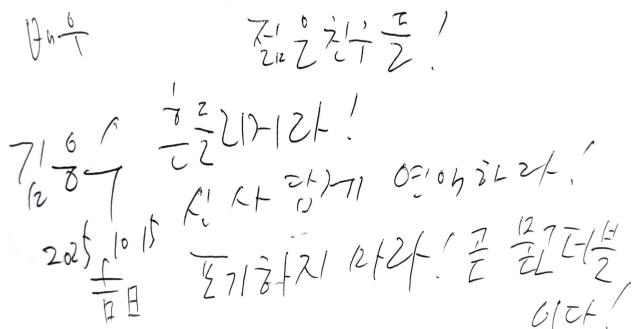 배우 젊은친구들!
김응수 흔들리거라!
신사답게 연애하라!
2025 10 15
포기하지 마라! 곧 묻고더블
이다!